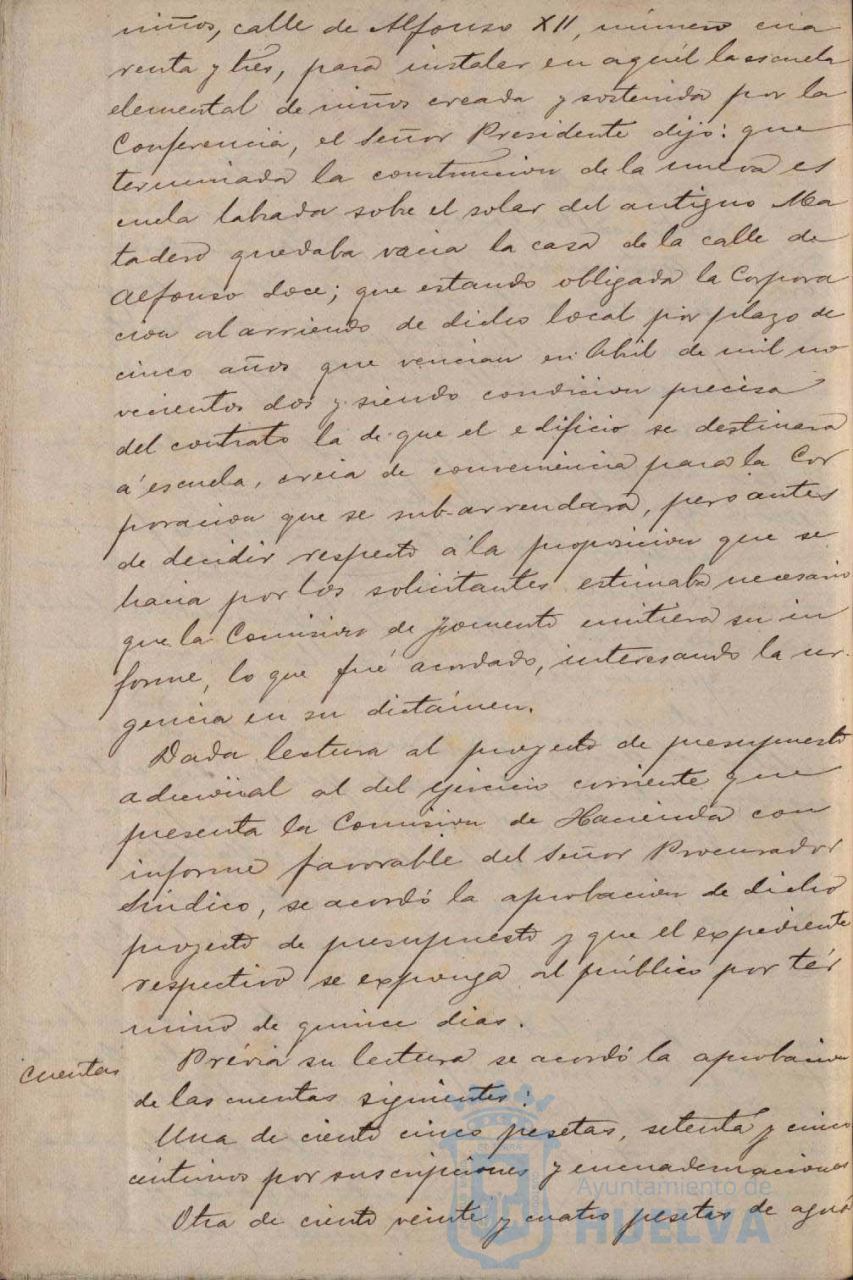 niños, calle de Alfonso XII, número cua
renta y tres, para instalar en aquél la escuela
elemental de niños creada y sostenida por la
Conferencia, el Señor Presidente dijo: que
terminada la construccion de la nueva es
cuela labrada sobre el solar del antiguo Ma
tadero quedaba vacia la casa de la calle de
Alfonso doce; que estando obligada la Corpora
cion al arriendo de dicho local por plazo de
cinco años que vencian en Abril de mil no
vecientos dos y siendo condicion precisa
del contrato la de que el edificio se destinara
á escuela, creia de conveniencia para la Cor
poracion que se sub-arrendara, pero antes
de decidir respecto á la proposicion que se
hacia por los solicitantes estimaba necesario
que la Comision de Fomento emitiera su in
forme, lo que fué acordado, interesando la ur-
gencia en su dictámen.
Dada lectura al proyecto de presupuesto
adicciónal al del ejercicio corriente que
presenta la Comision de Hacienda con
informe favorable del Señor Procurador
Síndico, se acordó la aprobacion de dicho
proyecto de presupuesto y que el expediente
respectivo se exponga al público por tér
mino de quince dias.
Cuentas
Prévia su lectura se acordó la aprobacion
de las cuentas siguientes:
Una de ciento cinco pesetas, setenta y cinco
céntimos por suscripciones y encuadernaciones
Otra de ciento veinte y cuatro pesetas de agua
Ayuntamiento de
HUELVA